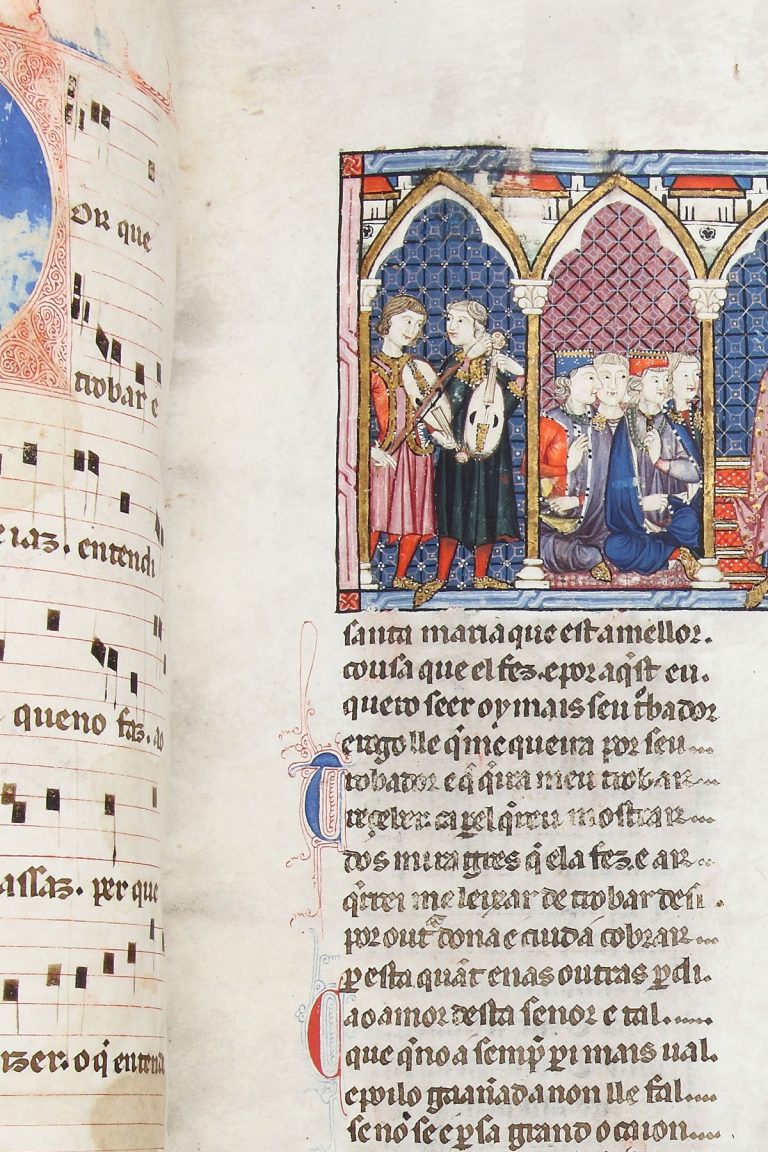 OR que
trobar e
e iaz. entendi
queno faz. ao
assaz. per que
rzer. o q̄ entend
santa maria que est a mellor.
cousa que el fez. e por aq̄st eu.
quero seer oy mais seu t̄bador
e rogo lle q̄ me queira por seu
Trobador e q̄ q̄ira meu trobar
reçeber. ca per el q̄reu mostrar
dos miragres q̄ ela fez. e ar
q̄rrei me leixar de trobar desi.
por outra dona e cuid a cobrar
per esta quāt enas outras perdi.
Ca o amor desta senor e tal.
que q̄no á semp̄ per i mais ual.
e poilo gaannad a non lle fal.
se nō se e per sa grand ocaion